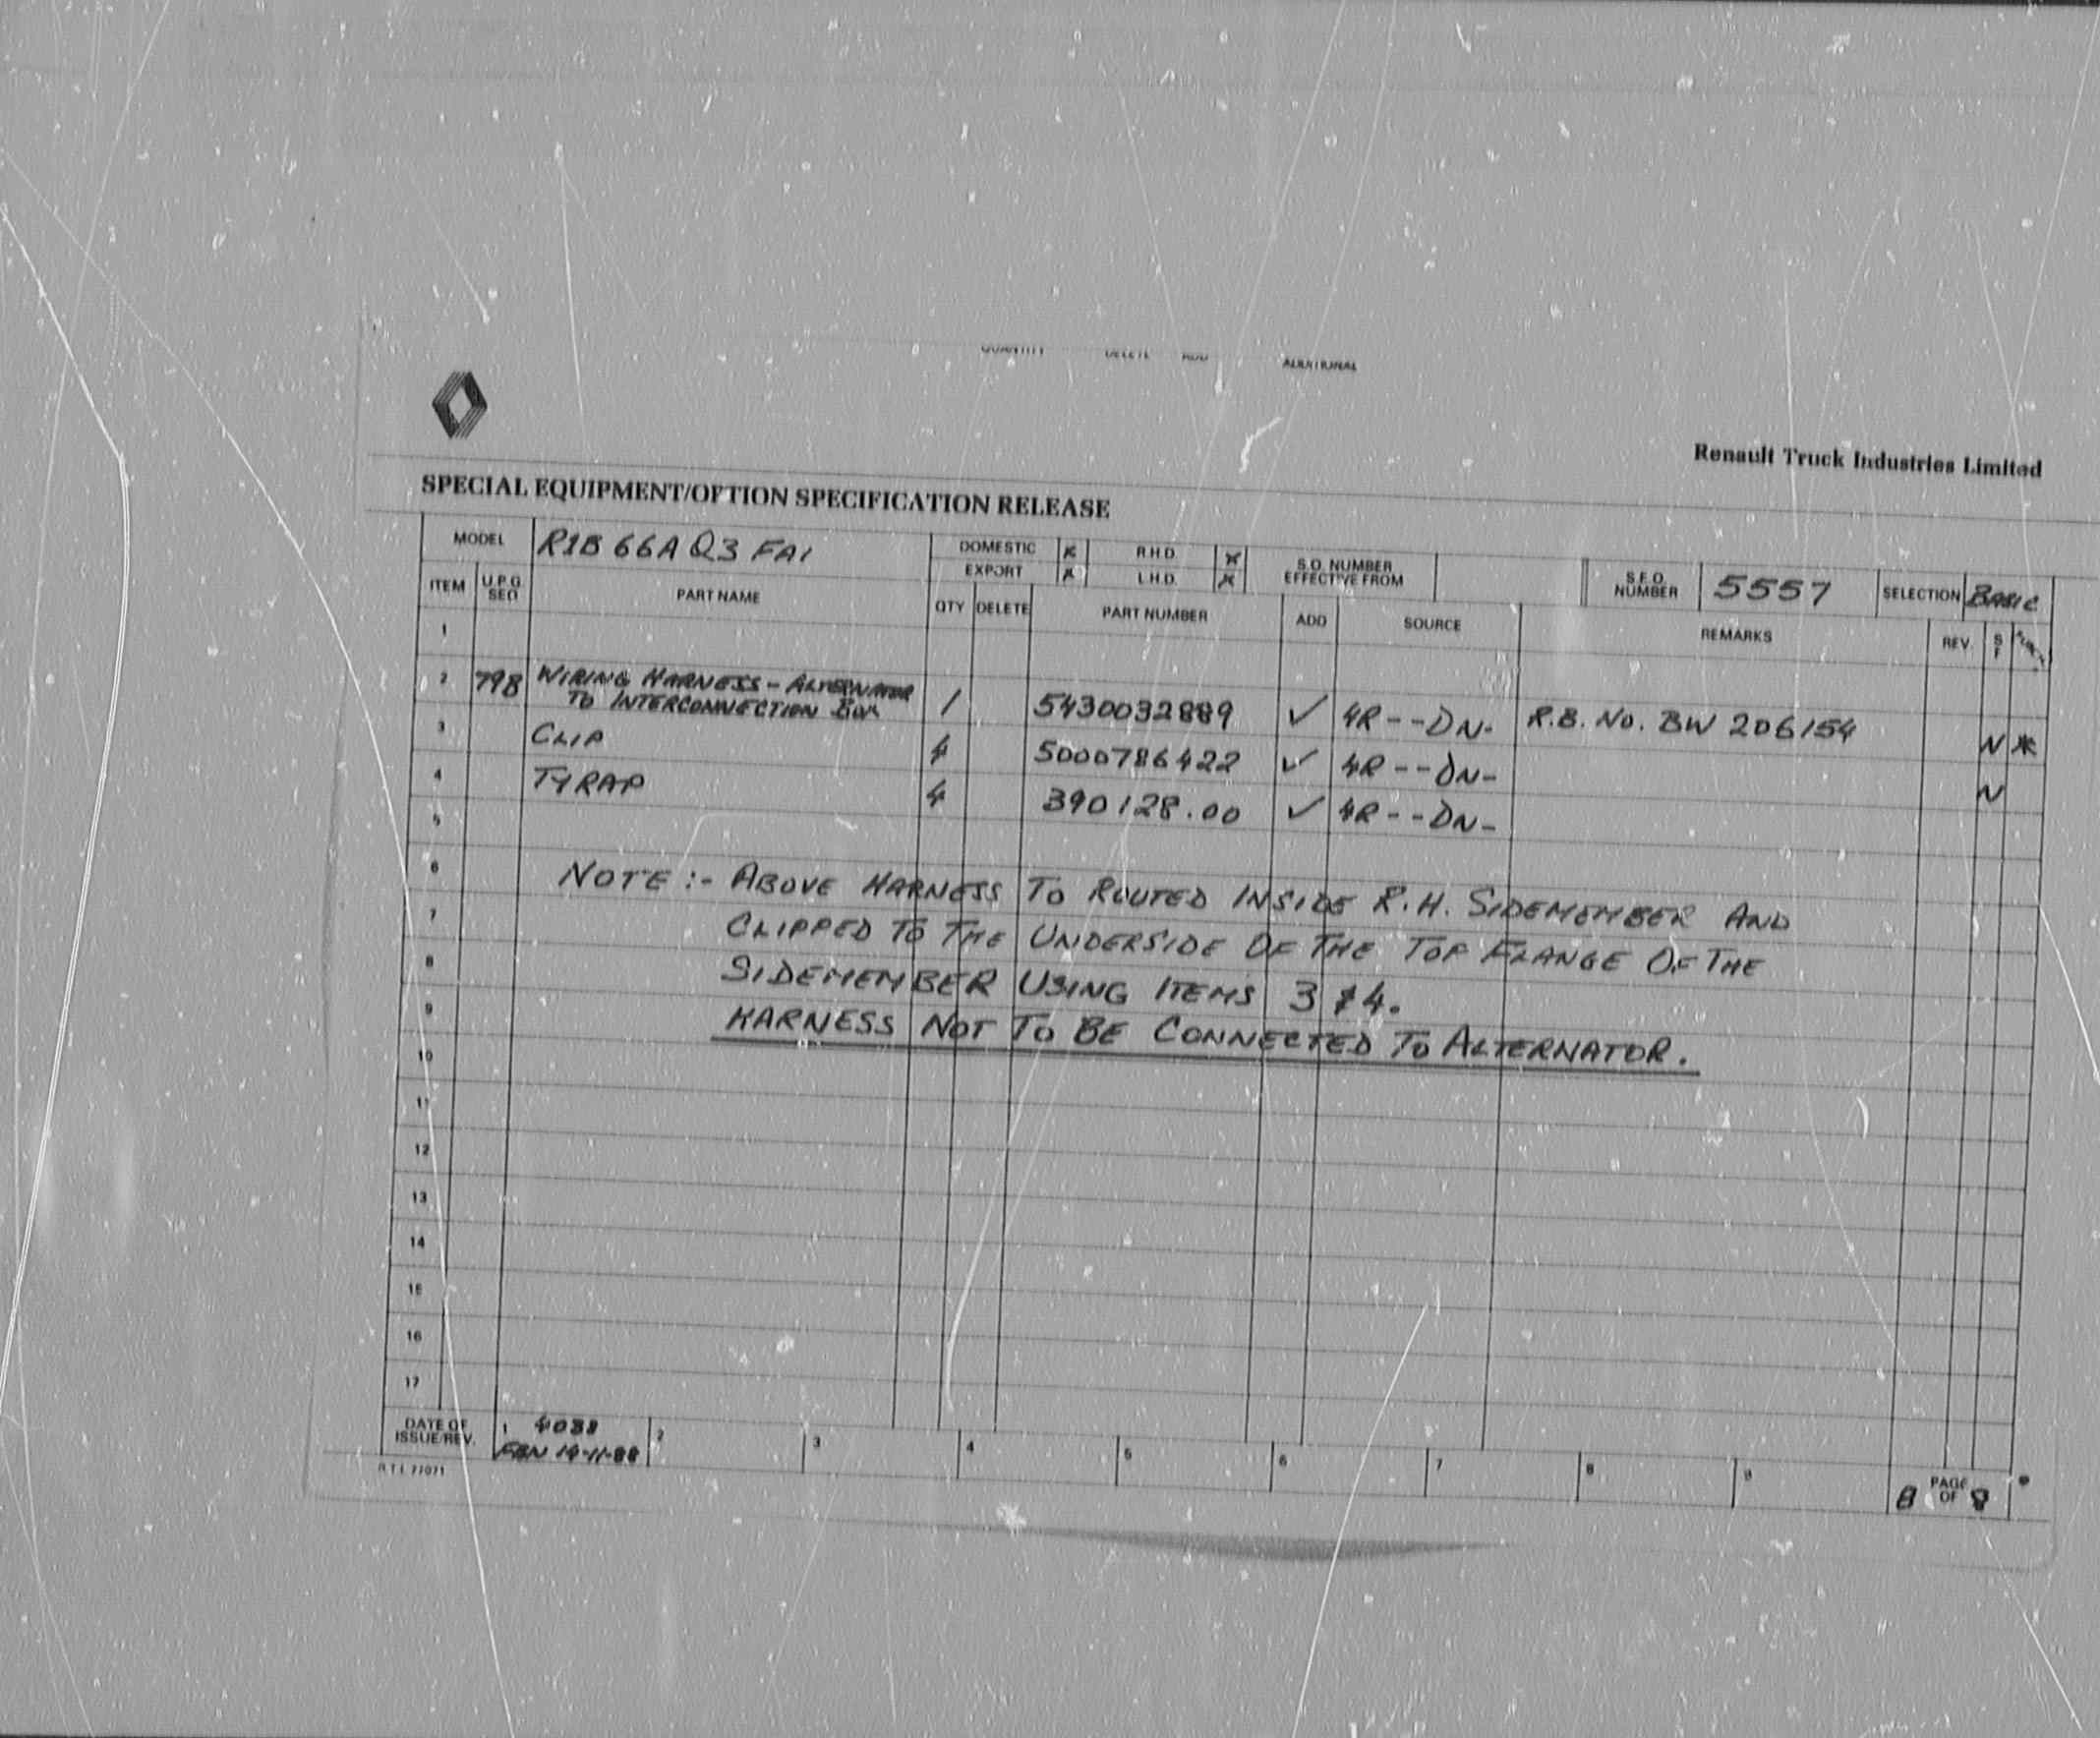 QUANTITY DELETE ADD ADDITIONAL
Renault Truck Industries Limited
SPECIAL EQUIPMENT/OPTION SPECIFICATION RELEASE
MODEL R1B 66A Q3 FA1 DOMESTIC * R.H.D. * S.O. NUMBER EFFECTIVE FROM S.F.O. NUMBER 5557 SELECTION BASIC
EXPORT * L.H.D. *
ITEM U.P.G. SEQ PART NAME QTY DELETE PART NUMBER ADD SOURCE REMARKS REV.
1
2 798 WIRING HARNESS - ALTERNATOR
TO INTERCONNECTION BOX 1 5430032889 ✓ 4R--DN- R.B. NO. BW 206154 N *
3 CLIP 4 5000786422 ✓ 4R--DN- N
4 TYRAP 4 390128.00 ✓ 4R--DN-
5
6 NOTE :- ABOVE HARNESS TO ROUTED INSIDE R.H. SIDEMEMBER AND
7 CLIPPED TO THE UNDERSIDE OF THE TOP FLANGE OF THE
8 SIDEMEMBER USING ITEMS 3 & 4.
9 HARNESS NOT TO BE CONNECTED TO ALTERNATOR.
10
11
12
13
14
15
16
17
DATE OF ISSUE/REV. 1 4038 2 3 4 5 6 7 8 9
19-11-88
R.T.I. 77071
8 PAGE OF 8